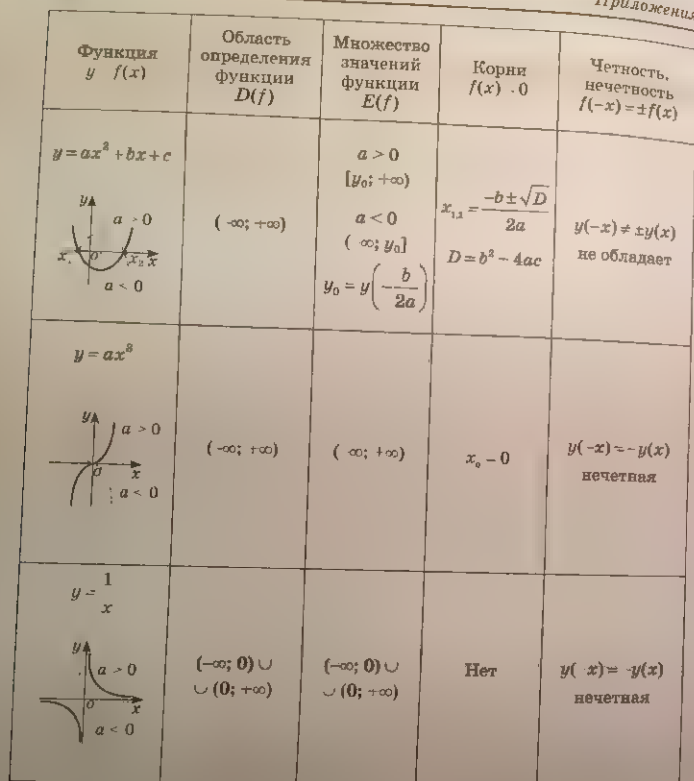 Приложения
Функция
y f(x)
Область
определения
функции
D(f)
Множество
значений
функции
E(f)
Корни
f(x) · 0
Четность,
нечетность
f(-x) = ±f(x)
y = ax² + bx + c
y
a > 0
x₁ O x₂ x
a < 0
(-∞; +∞)
a > 0
[y₀; +∞)
a < 0
( ∞; y₀]
y₀ = y(-b/2a)
x₁,₂ = (-b ± √D)/2a
D = b² - 4ac
y(-x) ≠ ±y(x)
не обладает
y = ax³
y
a > 0
O x
a < 0
(-∞; +∞)
( ∞; +∞)
x₀ - 0
y(-x) = -y(x)
нечетная
y = 1/x
y
a > 0
O x
a < 0
(-∞; 0) ∪
∪ (0; +∞)
(-∞; 0) ∪
∪ (0; +∞)
Нет
y( x) = -y(x)
нечетная